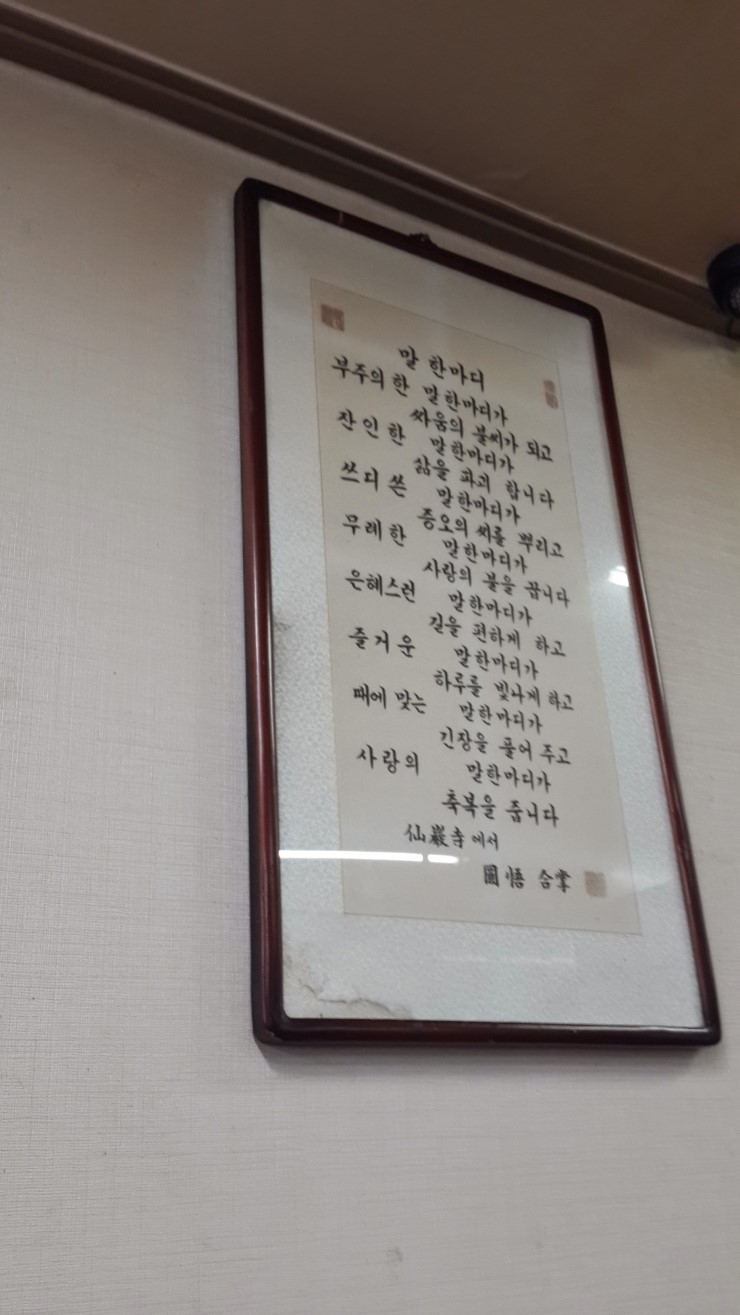 말 한마디
부주의 한 말 한마디가
싸움의 불씨가 되고
잔인한 말 한마디가
삶을 파괴 합니다
쓰디 쓴 말 한마디가
증오의 씨를 뿌리고
무례한 말 한마디가
사랑의 불을 끕니다
은혜스런 말 한마디가
길을 편하게 하고
즐거운 말 한마디가
하루를 빛나게 하고
때에 맞는 말 한마디가
긴장을 풀어 주고
사랑의 말 한마디가
축복을 줍니다
仙巖寺에서
圓悟 合掌